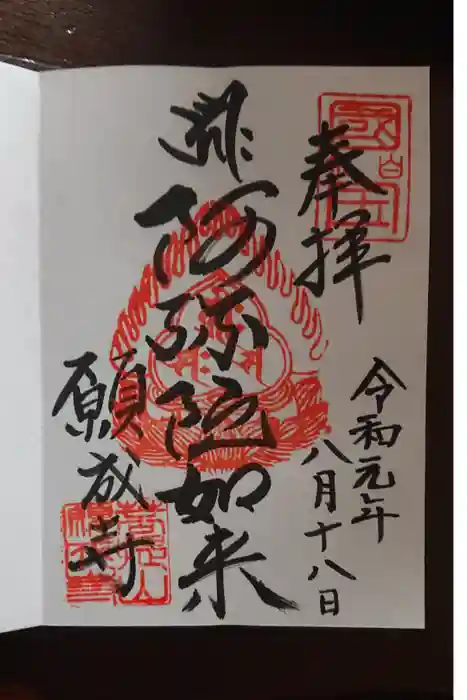 奉拝
令和元年
八月十八日
阿弥陀如来
願成寺